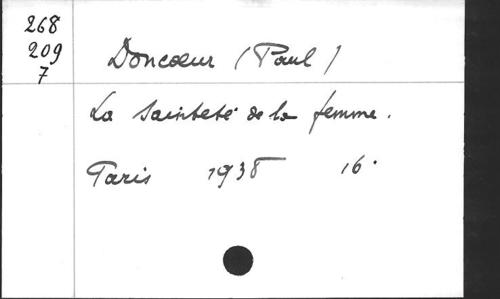 268
209
7
Doncœur (Paul)
La Sainteté de la femme.
Paris 1938 16°